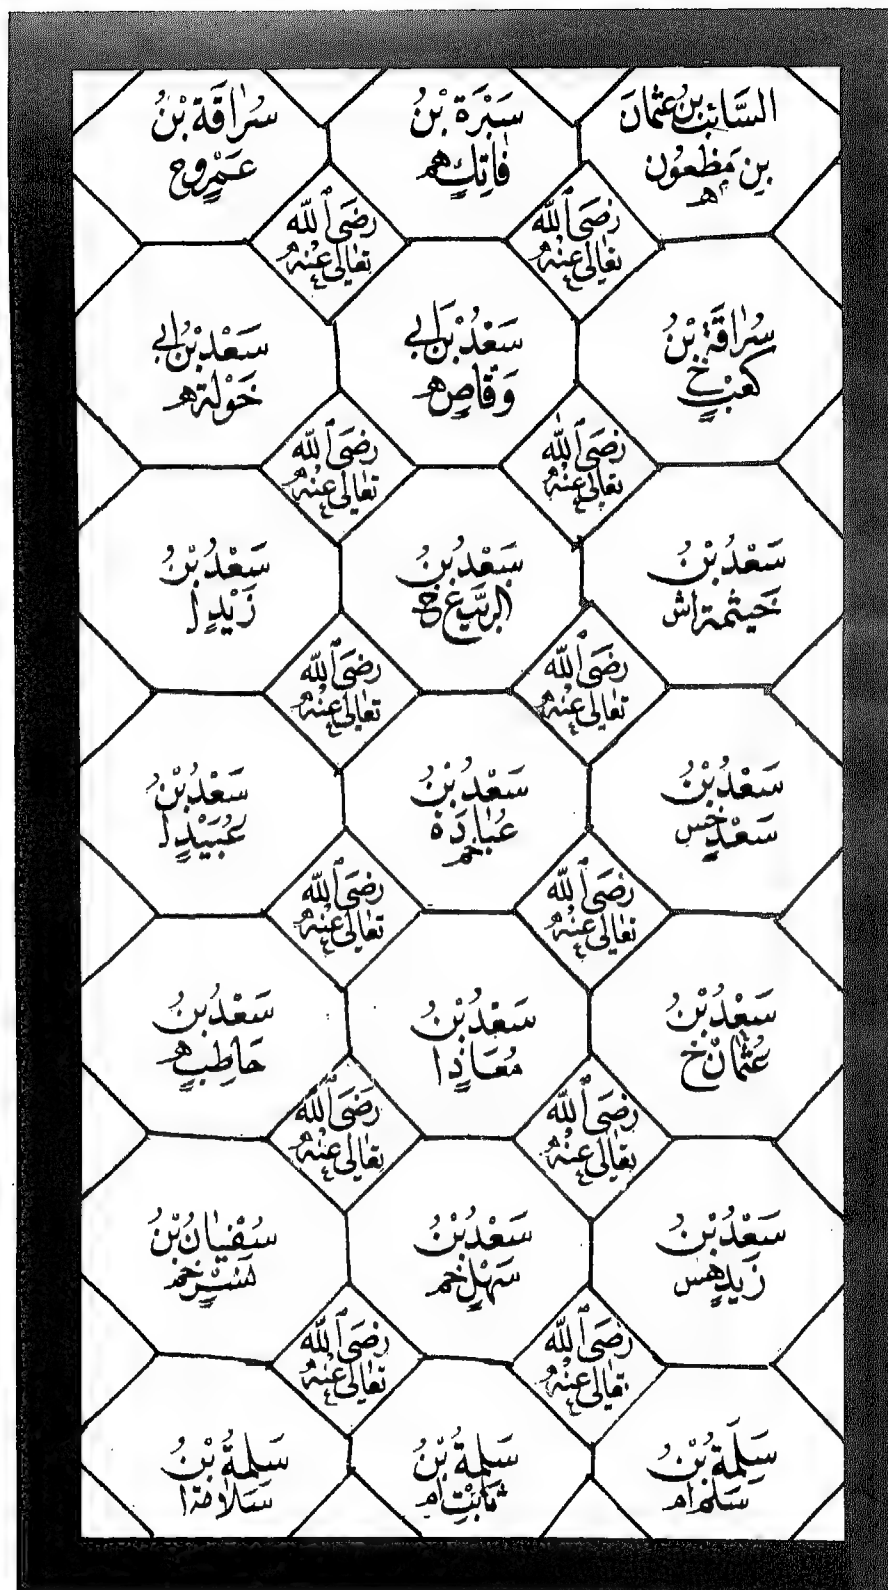 السَّائِبُ بْنُ عُثْمَانَ
بِنِ مَظْعُونٍ هـ
سَبْرَةُ بْنُ
فَاتِكٍ هـ
سُرَاقَةُ بْنُ
عَمْرٍو خ
رَضِىَ ٱللّٰه
تَعَالٰى عَنْهُ
رَضِىَ ٱللّٰه
تَعَالٰى عَنْهُ
سُرَاقَةُ بْنُ
كَعْبٍ خ
سَعْدُ بْنُ اَبِي
وَقَّاصٍ هـ
سَعْدُ بْنُ اَبِي
خَوْلَةَ هـ
رَضِىَ ٱللّٰه
تَعَالٰى عَنْهُ
رَضِىَ ٱللّٰه
تَعَالٰى عَنْهُ
سَعْدُ بْنُ
خَيْثَمَةَ اش
سَعْدُ بْنُ
الرَّبِيْعِ خ
سَعْدُ بْنُ
زَيْدٍ ا
رَضِىَ ٱللّٰه
تَعَالٰى عَنْهُ
رَضِىَ ٱللّٰه
تَعَالٰى عَنْهُ
سَعْدُ بْنُ
سَعْدٍ خس
سَعْدُ بْنُ
عُبَادَةَ خم
سَعْدُ بْنُ
عُبَيْدٍ ا
رَضِىَ ٱللّٰه
تَعَالٰى عَنْهُ
رَضِىَ ٱللّٰه
تَعَالٰى عَنْهُ
سَعْدُ بْنُ
عُثْمَانَ خ
سَعْدُ بْنُ
مُعَاذٍ ا
سَعْدُ بْنُ
حَاطِبٍ هـ
رَضِىَ ٱللّٰه
تَعَالٰى عَنْهُ
رَضِىَ ٱللّٰه
تَعَالٰى عَنْهُ
سَعْدُ بْنُ
زَيْدٍ هس
سَعْدُ بْنُ
سَهْلٍ خم
سُفْيَانُ بْنُ
خم
رَضِىَ ٱللّٰه
تَعَالٰى عَنْهُ
رَضِىَ ٱللّٰه
تَعَالٰى عَنْهُ
سَلَمَةُ بْنُ
سلم ام
سَلَمَةُ بْنُ
ثَابِتٍ ام
سَلَمَةُ بْنُ
سَلَامَةَ ا